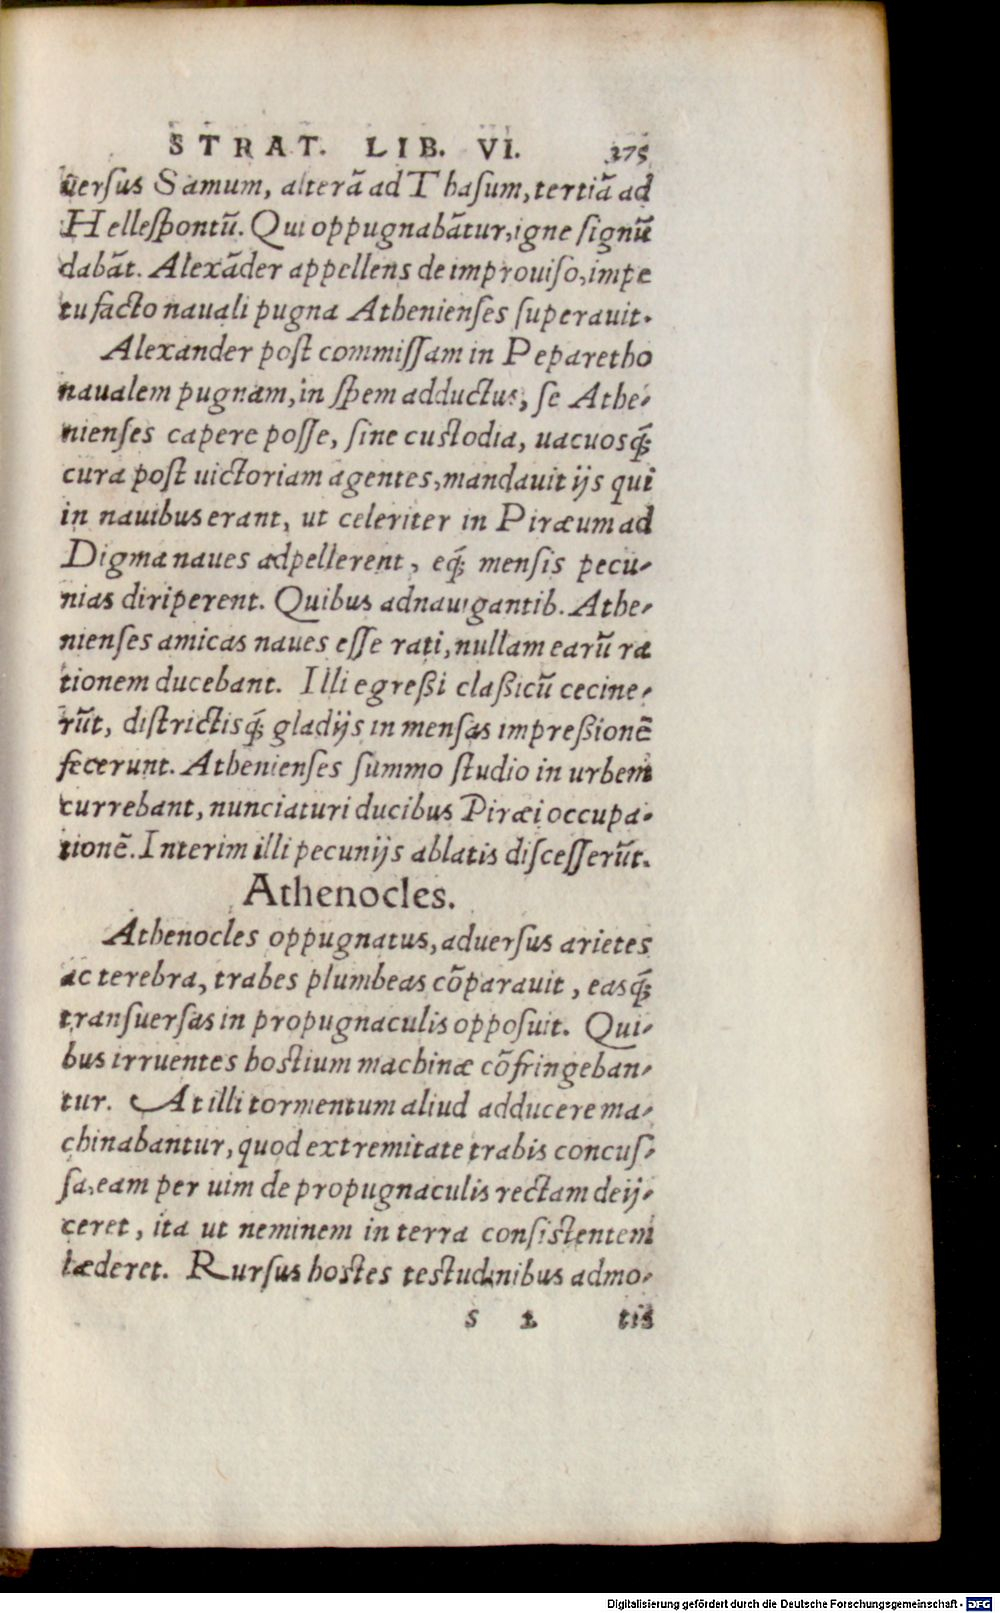 STRAT. LIB. VI. 275
uersus Samum, alterã ad Thasum, tertiã ad
Hellespontũ. Qui oppugnabãtur, igne signũ
dabãt. Alexãder appellens de improuiso, impe
tu facto nauali pugna Athenienses superauit.
Alexander post commissam in Peparetho
naualem pugnam, in spem adductus, se Athe-
nienses capere posse, sine custodia, uacuosq́;
cura post uictoriam agentes, mandauit ijs qui
in nauibus erant, ut celeriter in Piræum ad
Digma naues adpellerent, eq́; mensis pecu-
nias diriperent. Quibus adnauigantib. Athe-
nienses amicas naues esse rati, nullam earũ ra
tionem ducebant. Illi egreßi claßicũ cecine-
rũt, districtisq́; gladijs in mensas impreßionẽ
fecerunt. Athenienses summo studio in urbem
currebant, nunciaturi ducibus Piræi occupa-
tionẽ. Interim illi pecunijs ablatis discesserũt.
Athenocles.
Athenocles oppugnatus, aduersus arietes
ac terebra, trabes plumbeas cõparauit, easq́;
transuersas in propugnaculis opposuit. Qui-
bus irruentes hostium machinæ cõfringeban-
tur. At illi tormentum aliud adducere ma-
chinabantur, quod extremitate trabis concus-
sa, eam per uim de propugnaculis rectam deij-
ceret, ita ut neminem in terra consistentem
læderet. Rursus hostes testudinibus admo-
s 2 tis
Digitalisierung gefördert durch die Deutsche Forschungsgemeinschaft - DFG